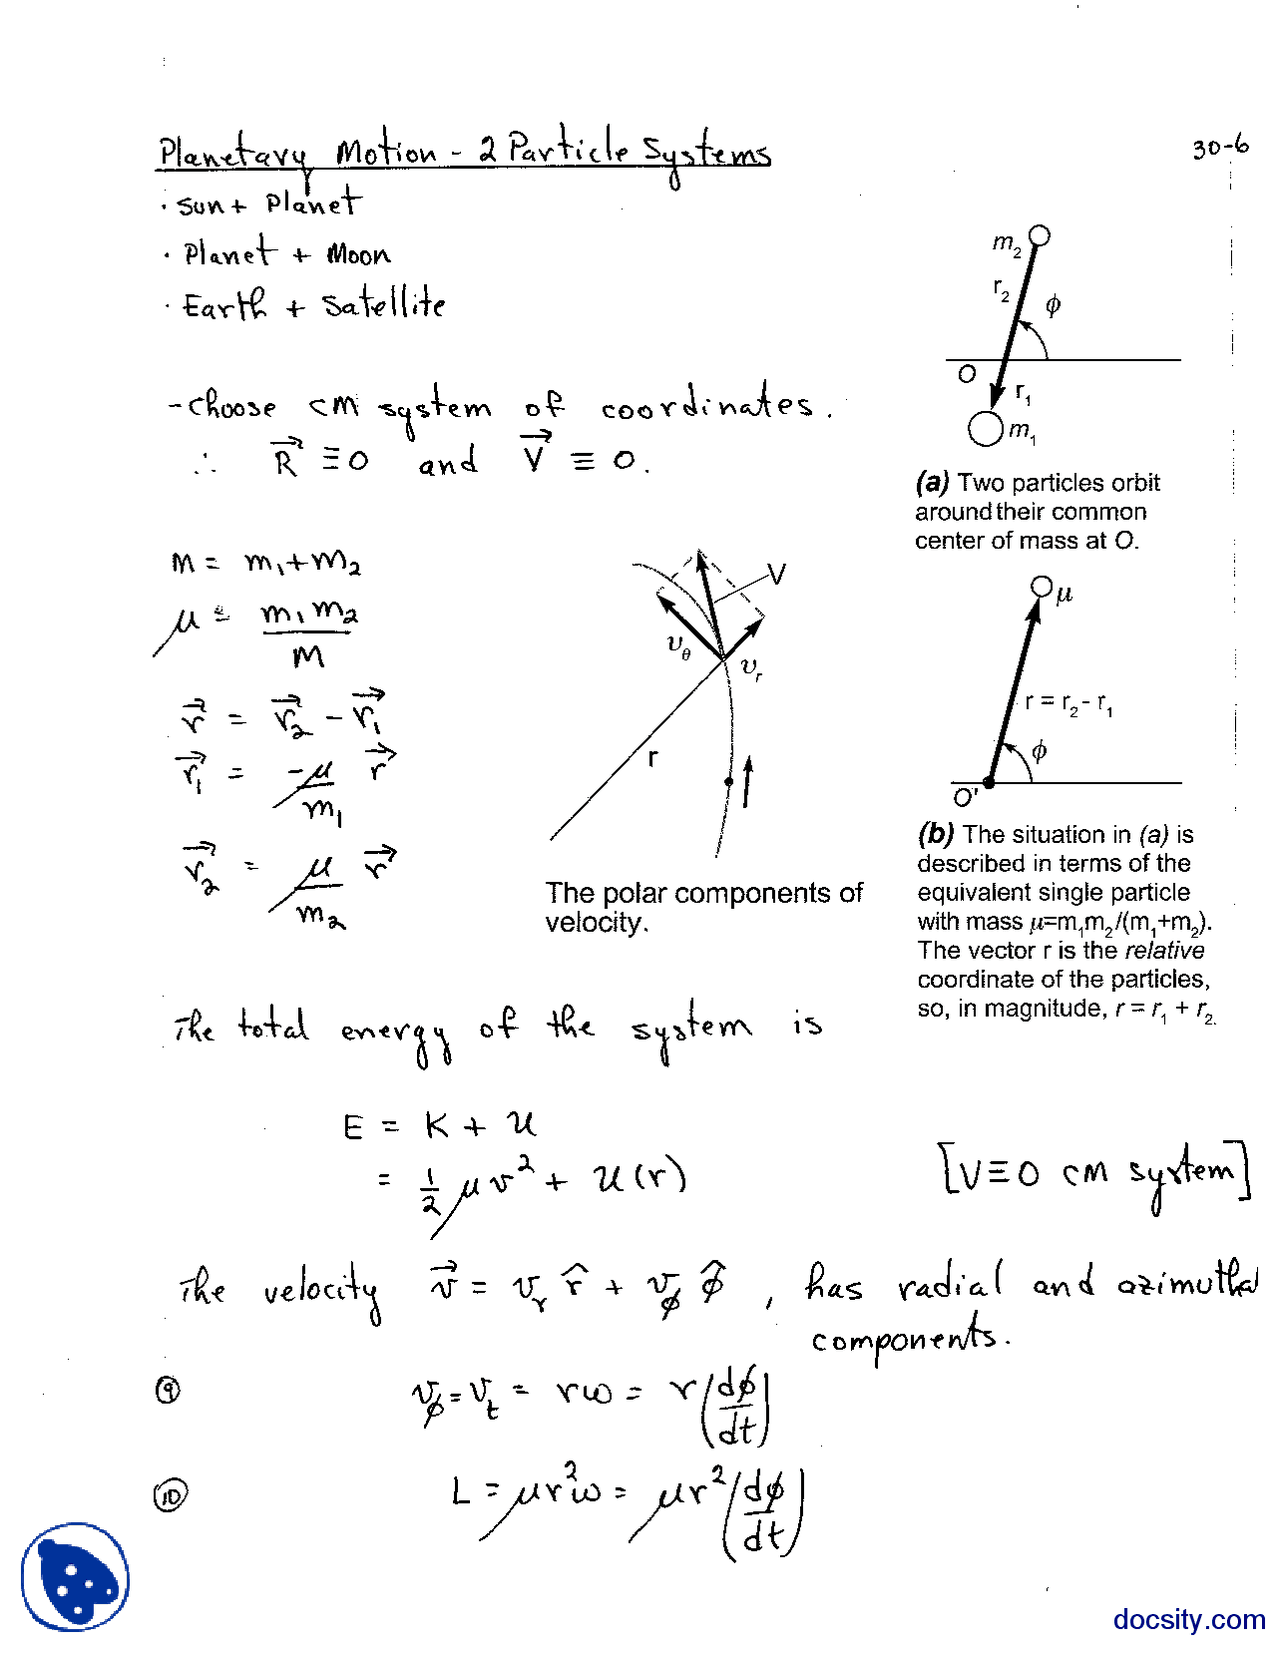 Planetary Motion - 2 Particle Systems
30-6
· Sun + Planet
· Planet + Moon
· Earth + Satellite
m₂
r₂
ϕ
O
r₁
m₁
(a) Two particles orbit
around their common
center of mass at O.
- Choose CM system of coordinates.
∴ R⃗ ≡ 0 and V⃗ ≡ 0.
M = m₁ + m₂
μ = m₁ m₂ / M
r⃗ = r⃗₂ - r⃗₁
r⃗₁ = -μ/m₁ r⃗
r⃗₂ = μ/m₂ r⃗
V
υ_θ
υ_r
r
The polar components of
velocity.
μ
r = r₂ - r₁
ϕ
O'
(b) The situation in (a) is
described in terms of the
equivalent single particle
with mass μ=m₁m₂/(m₁+m₂).
The vector r is the relative
coordinate of the particles,
so, in magnitude, r = r₁ + r₂.
The total energy of the system is
E = K + U
= 1/2 μv² + U(r)
[V≡0 CM system]
The velocity v⃗ = v_r r̂ + v_ϕ ϕ̂, has radial and azimuthal
components.
⑨ v_ϕ = v_t = rω = r(dϕ/dt)
⑩ L = μr²ω = μr²(dϕ/dt)
docsity.com